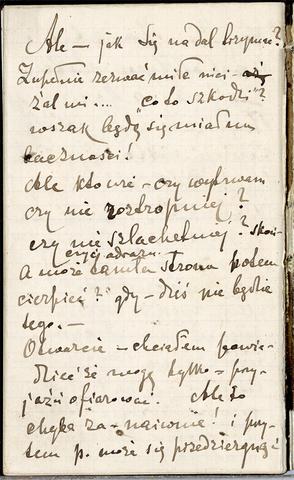 Ale — jak się nadal trzymać?
Zupełnie zerwać miłe nici —
żal mi.... "co to szkodzi"?
wszak będę się miał na
baczności!
Ale kto wie — czy wytrwam
czy nie roztropniej?
czy nie szlachetniej? skoń-
czyć odrazu.—
A może tamta strona potem
cierpieć? gdy — dziś nie będzie
tego.—
Otwarcie — chciałem powie-
dzieć że mogę tylko — przy-
jaźń ofiarować. Ale to
chyba za-naiwne! i przy-
tem p. może się przedzierzgnąć